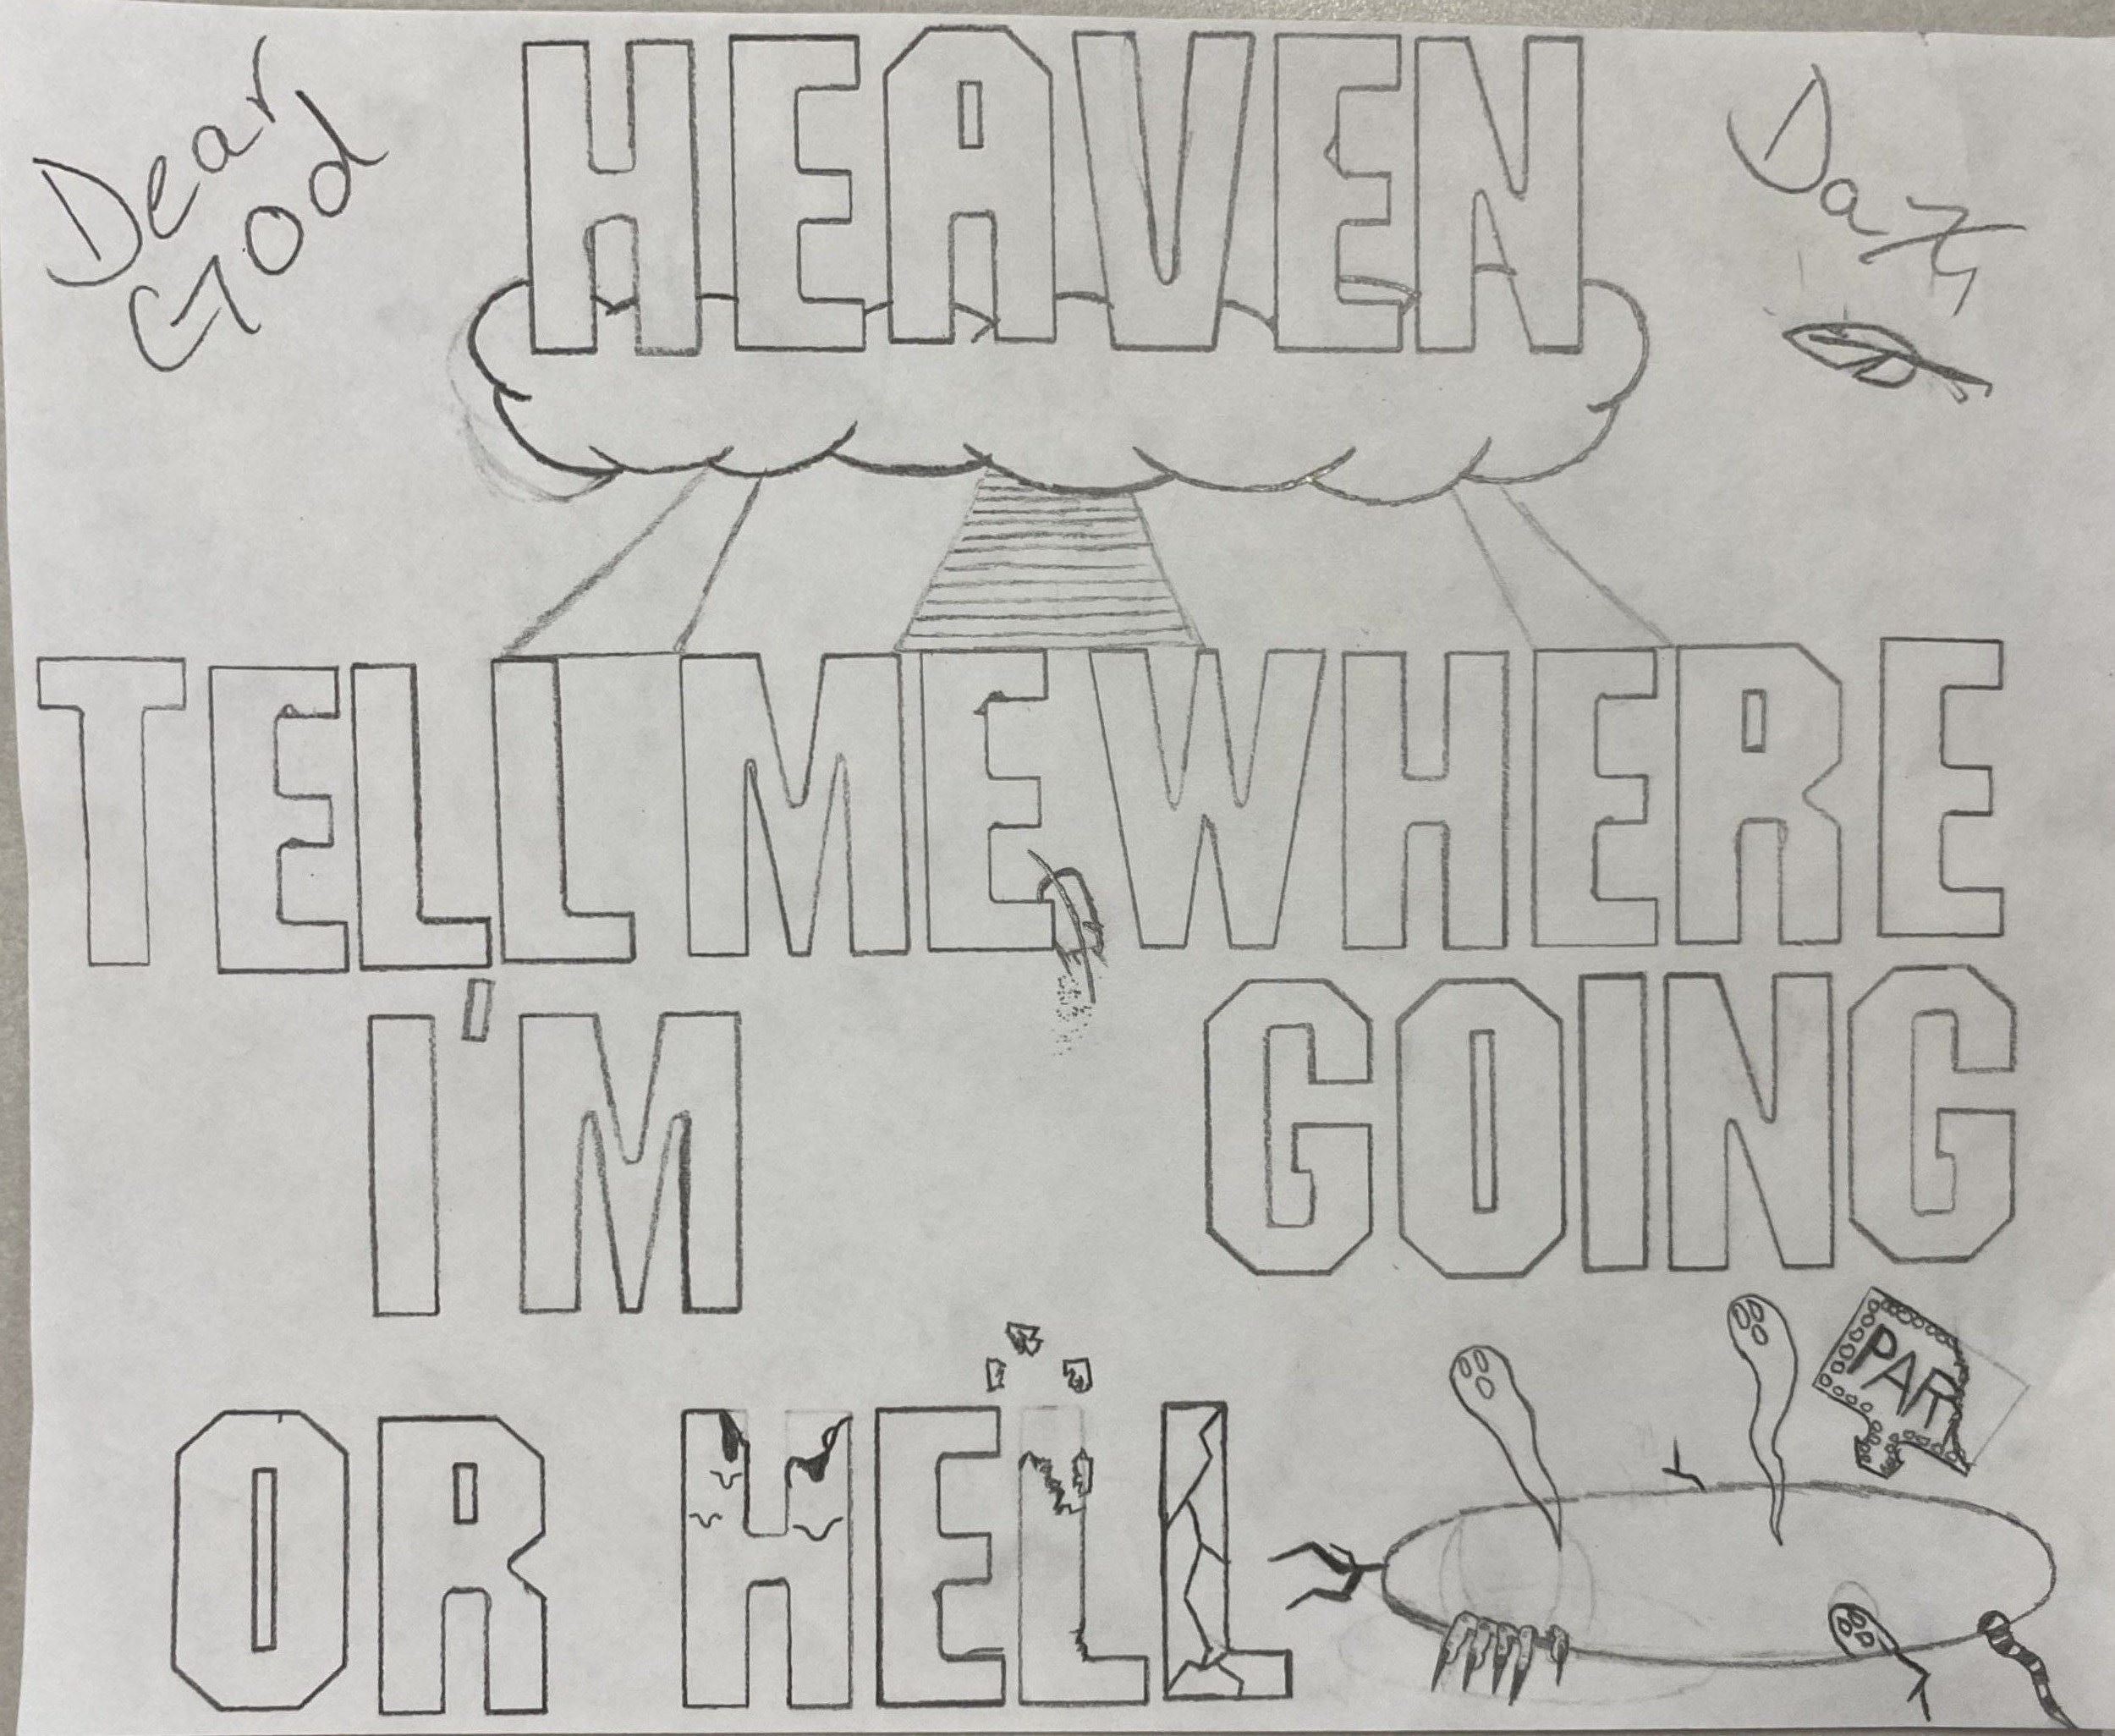 Dear
God
HEAVEN
TELL ME WHERE
I'M GOING
OR HELL
PAR